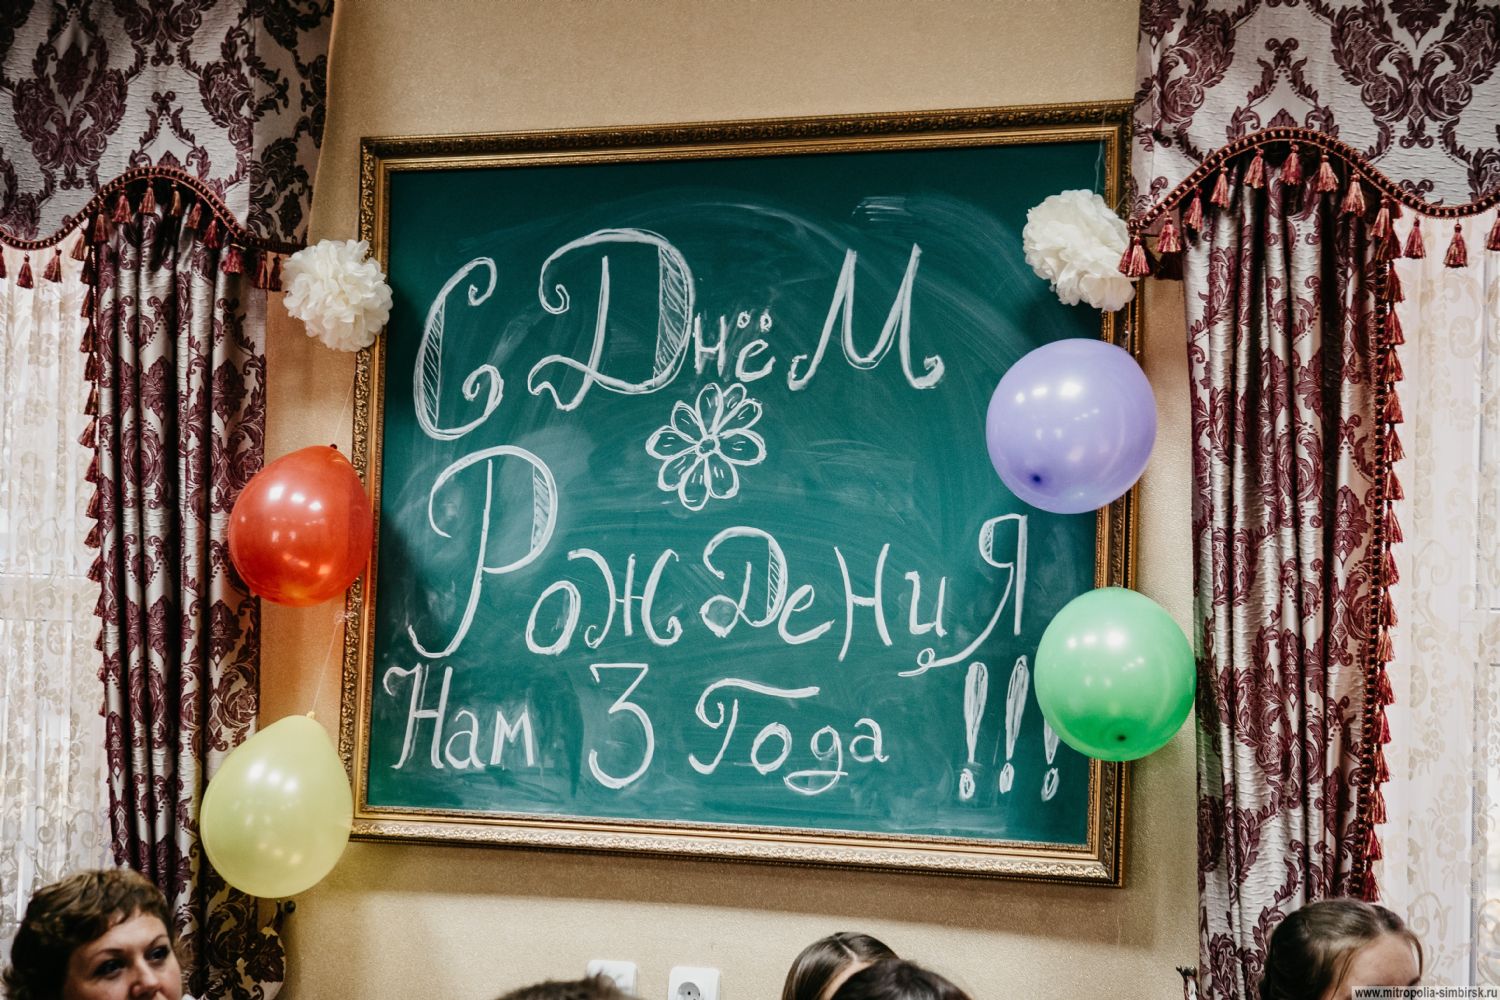 С Днём
Рожденця
Нам 3 Года !!!
www.mitropolia-simbirsk.ru